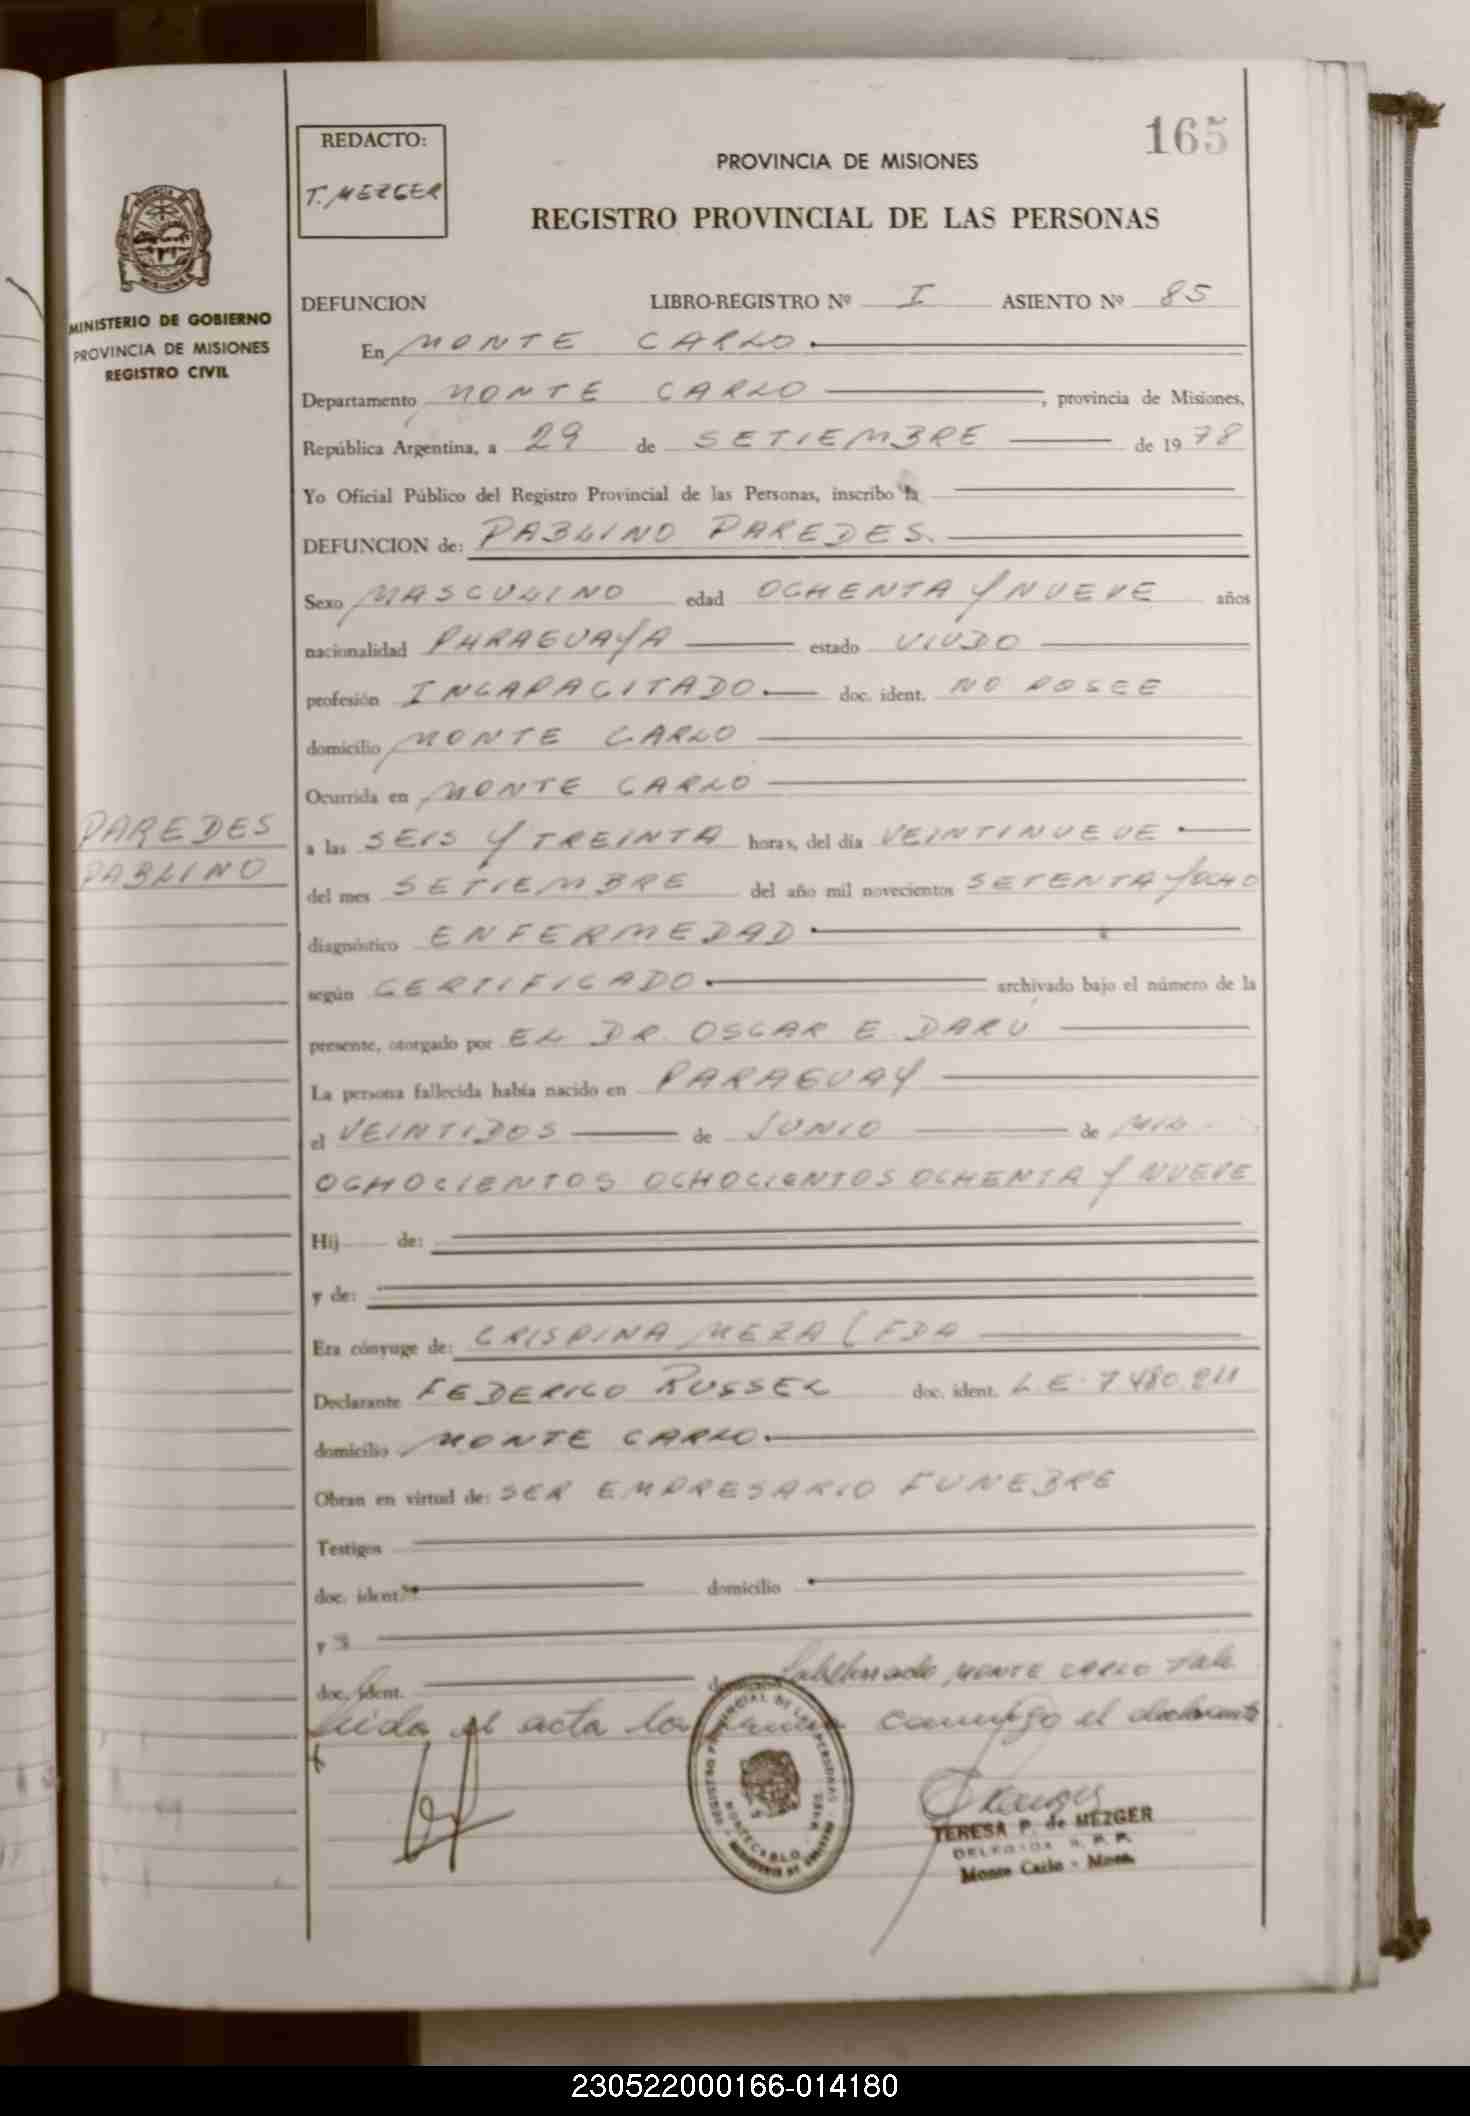 165
REDACTO:
T. MEZGER
PROVINCIA DE MISIONES
REGISTRO PROVINCIAL DE LAS PERSONAS
MINISTERIO DE GOBIERNO
PROVINCIA DE MISIONES
REGISTRO CIVIL
DEFUNCION LIBRO-REGISTRO Nº I ASIENTO Nº 85
En MONTE CARLO
Departamento MONTE CARLO, provincia de Misiones,
República Argentina, a 29 de SETIEMBRE de 1978
Yo Oficial Público del Registro Provincial de las Personas, inscribo la
DEFUNCION de: PABLINO PAREDES.
Sexo MASCULINO edad OCHENTA Y NUEVE años
nacionalidad PARAGUAYA estado VIUDO
profesión INCAPACITADO doc. ident. NO POSEE
domicilio MONTE CARLO
Ocurrida en MONTE CARLO
PAREDES
PABLINO
a las SEIS Y TREINTA horas, del día VEINTINUEVE
del mes SETIEMBRE del año mil novecientos SETENTA Y OCHO
diagnóstico ENFERMEDAD
según CERTIFICADO archivado bajo el número de la
presente, otorgado por EL DR. OSCAR E. DARU
La persona fallecida había nacido en PARAGUAY
el VEINTIDOS de JUNIO de MIL
OCHOCIENTOS OCHOCIENTOS OCHENTA Y NUEVE
Hij de:
y de:
Era cónyuge de: CRISPINA MEZA (FDA
Declarante FEDERICO RUSSEL doc. ident. L.E. 7.480.211
domicilio MONTE CARLO
Obran en virtud de: SER EMPRESARIO FUNEBRE
Testigos
doc. ident. domicilio
y
doc. ident. MONTE CARLO Vale
Leida el acta la conmigo el declarante
REGISTRO PROVINCIAL DE LAS PERSONAS
MONTECARLO
TERESA P. de MEZGER
DELEGADA R. P. P.
Monte Carlo - Mnes.
230522000166-014180